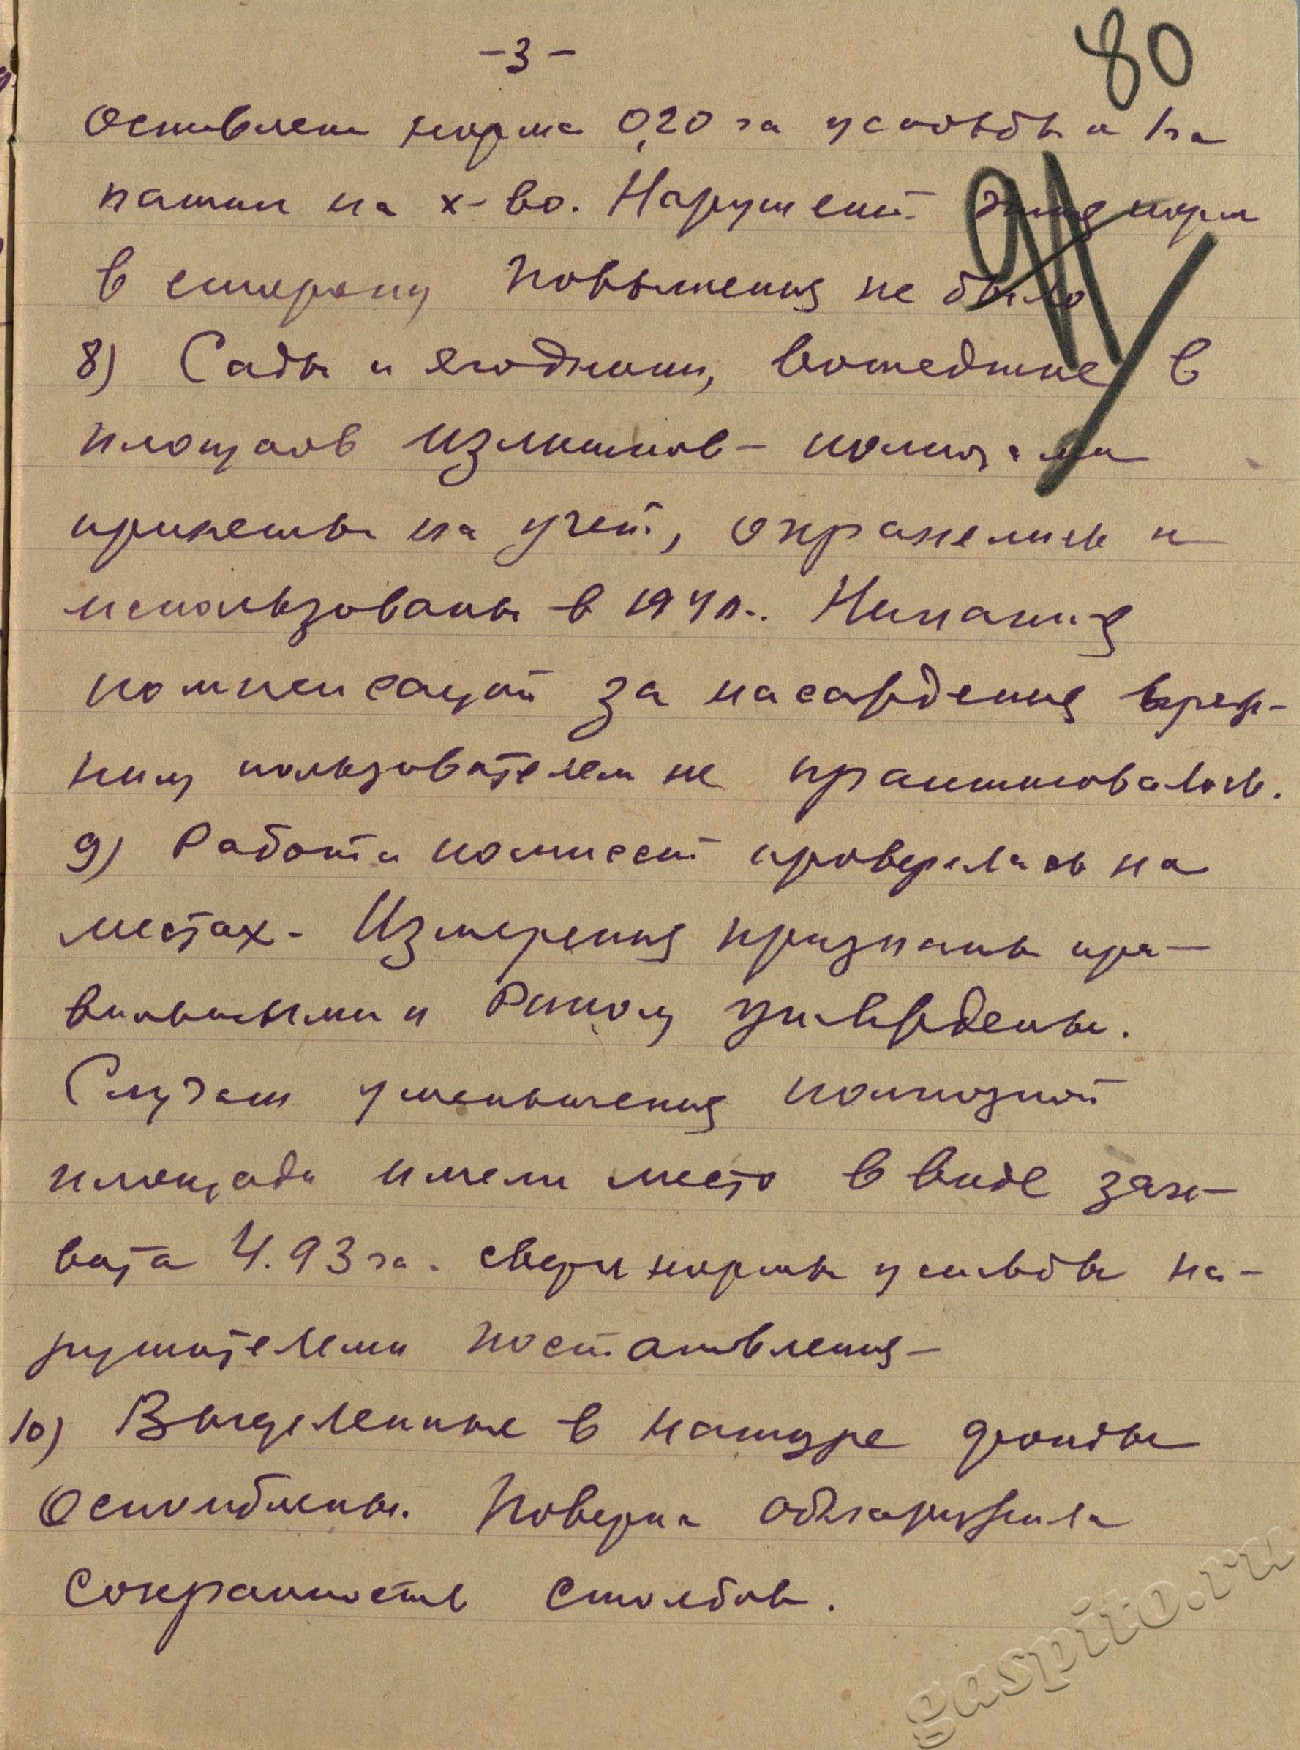 -3-
80
91
Оставлена норма 0,20 га усадьбы и 1 га
пашни на х-во. Нарушений этих норм
в сторону повышения не было
8) Сады и ягодники, вошедшие в
площадь излишков - колхозами
приняты на учет, охранялись и
использованы в 194 г. Никаких
компенсаций за насаждения преж-
ним пользователям не практиковалось.
9) Работа комиссий проверялась на
местах. Измерения признаны пра-
вильными и Риком утверждены.
Случаи уменьшения колхозной
площади имели место в виде зах-
вата 4.93 га. сверх нормы усадьбы на-
рушителями постановления-
10) Выделенные в натуре фонды
Остолблены. Поверка обнаружила
сохранность столбов.
gaspito.ru